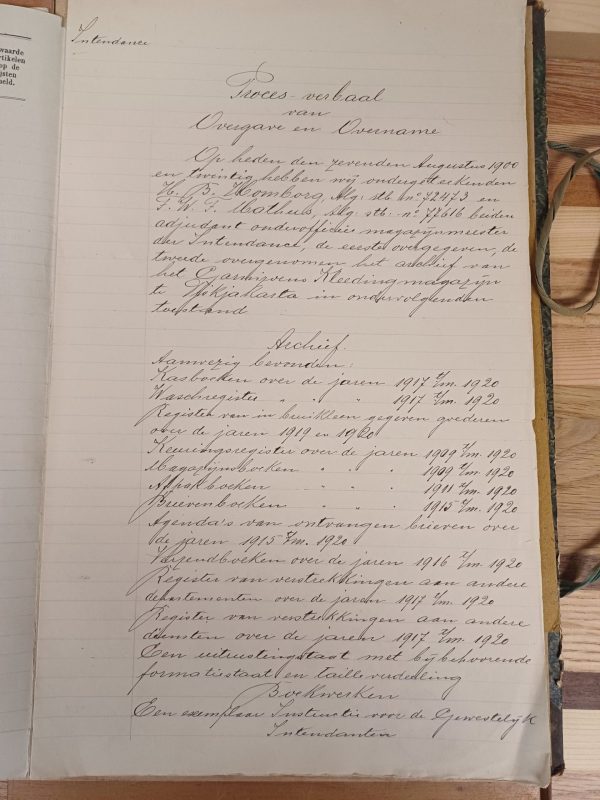 waarde
rtikelen
op de
ijsten
eld.
Intendance
Proces-verbaal
van
Overgave en Overname
Op heden den zevenden Augustus 1900
en twintig hebben wij ondergeteekenden
H. B. Homborg, Alg. stb. no. 72473 en
F. W. F. Matheus, Alg. stb. no. 77616 beiden
adjudant onderofficier magazijnmeester
der Intendance, de eerste overgegeven, de
tweede overgenomen het archief van
het Garnizoens Kleedingmagazijn
te Djokjakarta in ondervolgenden
toestand
Archief.
Aanwezig bevonden:
Kasboeken over de jaren 1917 t/m. 1920
Waschregister " " " 1917 t/m. 1920
Register van in bruikleen gegeven goederen
over de jaren 1919 en 1920
Keuringsregister over de jaren 1909 t/m. 1920
Magazijnsboeken " " " 1909 t/m. 1920
Afpakboeken " " " 1911 t/m. 1920
Brievenboeken " " " 1915 t/m. 1920
Agenda's van ontvangen brieven over
de jaren 1915 t/m. 1920
Verzendboeken over de jaren 1916 t/m. 1920
Register van verstrekkingen aan andere
departementen over de jaren 1917 t/m. 1920
Register van verstrekkingen aan andere
diensten over de jaren 1917 t/m. 1920
Een uitrustingstaat met bijbehoorende
formatiestaat en tailleverdeeling
Boekwerken
Een exemplaar Instructie voor de Gewestelijk
Intendanten